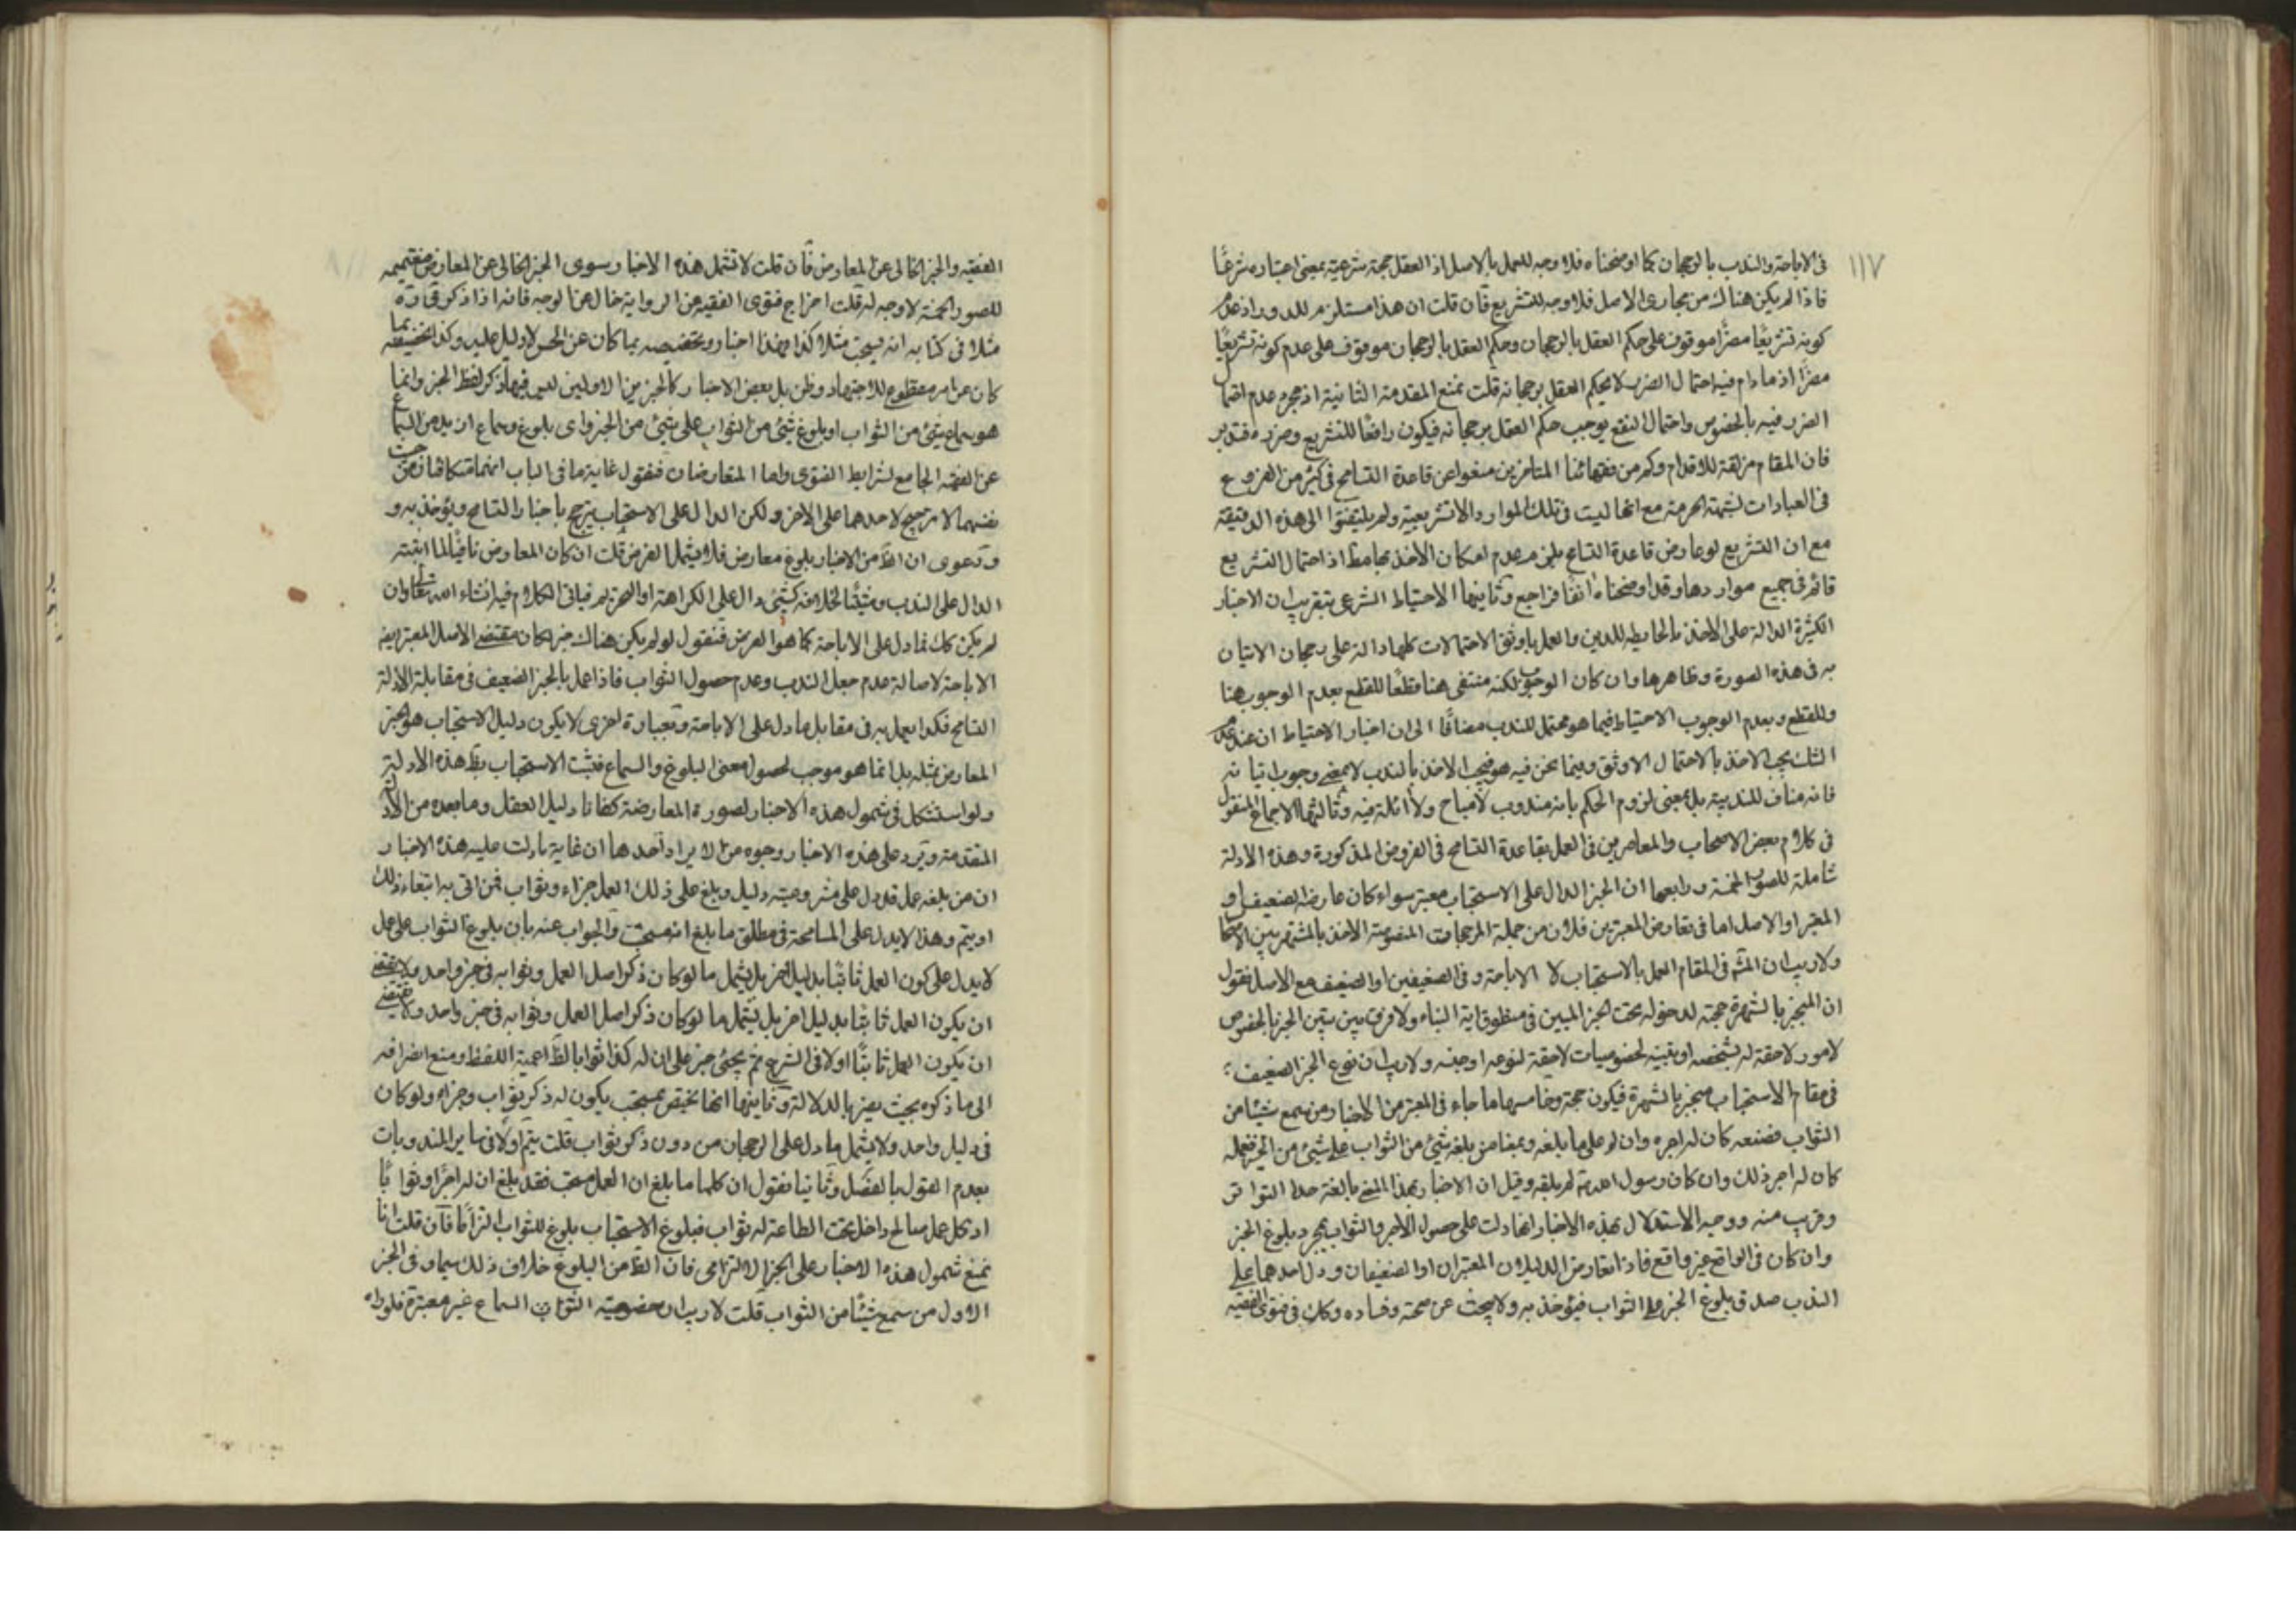 ١١٧
فى الاباحة والندب بالرجحان كما اوضحناه فلا وجه للعمل بالاصل اذ العقل حجة شرعية بمعنى اعتباره شرعًا
فاذا لم يكن هناك من مجارى الاصل فلا وجه للتشريع فان قلت ان هذا مستلزم للدور اذ عدم
كونه تشريعًا مضرًا موقوف على حكم العقل بالرجحان وحكم العقل بالرجحان موقوف على عدم كونه تشريعًا
مضرًا اذ مادام فيه احتمال الضرر لا يحكم العقل برجحانه قلت نمنع المقدمة الثانية اذ مجرد عدم احتمال
الضرر فيه بالخصوص واحتمال النفع يوجب حكم العقل برجحانه فيكون رافعًا للتشريع وضرره فتدبر
فان المقام مزلقة للاقدام وكم من فقهائنا المتاخرين منعوا عن قاعدة التسامح فى كثير من الفروع
فى العبادات لشبهة الحرمة مع انها ليست فى تلك الموارد الا تشريعية ولم يلتفتوا الى هذه الدقيقة
مع ان التشريع لو عارض قاعدة التسامح يلزم عدم امكان الاخذ بها اذ احتمال التشريع
قائم فى جميع مواردها وقد اوضحناه انفًا فراجع وثانيها الاحتياط الشرعى بتقريب ان الاخبار
الكثيرة الدالة على الاخذ بالحايطة للدين والعمل باوثق الاحتمالات كلها دالة على رجحان الاتيان
به فى هذه الصورة وظاهرها وان كان الوجوب لكنه منتفى هنا قطعًا للقطع بعدم الوجوب هنا
وللقطع وبعدم الوجوب الاحتياط فيما هو محتمل للندب مضافًا الى ان اخبار الاحتياط ان عند
الشك يجب الاخذ بالاحتمال الاوثق وفيما نحن فيه هو فيجب الاخذ بالندب لا بمعنى وجوب اتيانه
فانه مناف للندبية بل بمعنى لزوم الحكم بانه مندوب لا مباح وثالثها الاجماع المنقول
فى كلام بعض الاصحاب والمعاصرين فى العمل بقاعدة التسامح فى الفروض المذكورة وهذه الادلة
شاملة للصور الخمسة ورابعها ان الخبر الدال على الاستحباب معتبر سواء كان عارضه الضعيف او
المعتبر او الاصل اما فى تعارض المعتبرين فلان من جملة المرجحات المنصوصة الاخذ بالمشتهر بين الاصحاب
ولا ريب ان فى المقام العمل بالاستحباب لا الاباحة وفى الضعيفين او الضعيف مع الاصل فنقول
ان المنجبر بالشهرة حجة لدخوله تحت الخبر المبين فى منطوق اية النباء ولا فرق بين تبين الخبر بالخصوص
لامور لاحقة له بشخصه او تبينه لخصوصيات لاحقة لنوعه او جنسه ولا ريب ان نوع الخبر الضعيف
فى مقام الاستحباب منجبر بالشهرة فيكون حجة وخامسها ما جاء فى المعتبر من الاخبار من سمع شيئا من
الثواب فصنعه كان له اجره وان لم على ما بلغه وبمعناه من بلغه شيئ من الثواب على شيئ من الخير فعمله
كان له اجر ذلك وان كان رسول الله لم يقله وقيل ان الاخبار بهذا المعنى بالغة حد التواتر
وقريب منه ووجه الاستدلال بهذه الاخبار انها دلت على حصول الاجر والثواب بمجرد بلوغ الخبر
وان كان فى الواقع غير واقع فاذا تعارض الدليلان المعتبران او الضعيفان ودل احدهما على
الندب صدق بلوغ الخبر على الثواب فيؤخذ به ولا يبحث عن صحته وفساده وكك فى فتوى الفقيه
الفقيه والخبر الخالى عن المعارض فان قلت لا تشمل هذه الاخبار سوى الخبر الخالى عن المعارض فتعميمه
للصور الخمسة لا وجه له قلت اخراج فتوى الفقيه عن الرواية خال عن الوجه فانه اذا ذكر
مثلا فى كتابه انه يستحب مثلا كذا فهذا اخبار وتخصيصه بما كان عن الحس لا دليل عليه وكذا تخصيصه بما
كان عن امر مقطوع للاجتهاد وظن بل بعض الاخبار كالخبرين الاولين ليس فيها ذكر لفظ الخبر وانما
هو سماع شيئ من الثواب او بلوغ شيئ من الثواب على شيئ من الخير واى بلوغ وسماع ازيد من السماع
عن الفقيه الجامع لشرايط الفتوى واما المتعارضان فنقول غاية ما فى الباب انهما تكافئا من حيث
نفسهما لا ترجيح لاحدهما على الاخر ولكن الدال على الاستحباب يترجح باخبار التسامح ويؤخذ به و
ودعوى ان الظ من الاخبار بلوغ معارض فلا يشمل الفرض قلت ان كان المعارض نافيًا لما اثبته
الدال على الندب ومثبتًا لخلافه كشيئ دال على الكراهة او الحرمة فياتى الكلام فيه انشاء الله تعالى وان
لم يكن كك بل دل على الاباحة كما هو الفرض فنقول لو لم يكن هناك خبر كان مقتضى الاصل المعتبر فيه
الاباحة لاصالة عدم جعل الندب وعدم حصول الثواب فاذا عمل بالخبر الضعيف فى مقابلة الادلة
التسامح فكذا يعمل به فى مقابل ما دل على الاباحة وبعبارة اخرى لا يكون دليل الاستحباب هو الخبر
المعارض بمثله بل انما هو موجب لحصول معنى البلوغ والسماع فثبت الاستحباب بظ هذه الادلة
ولو استشكل فى شمول هذه الاخبار لصورة المعارضة كفانا دليل العقل وما بعده من الادلة
المتقدمة ويرد على هذه الاخبار وجوه من الايراد احدها ان غاية ما دلت عليه هذه الاخبار
ان من بلغه عمل قد دل على مشروعيته دليل وبلغ على ذلك العمل جزاء وثواب فمن اتى به ابتغاء ذلك
اوتيتم وهذا لا يدل على المسامحة فى مطلق ما بلغ انه مستحب والجواب عنه بان بلوغ الثواب على عمل
لا يدل على كون العمل ثابتًا بدليل اخر بل يشمل ما لو كان ذكر اصل العمل وثوابه فى خبر واحد ولا يقتضى
ان يكون العمل ثابتا بدليل اخر بل يشمل ما لو كان ذكر اصل العمل وثوابه فى خبر واحد ولا يقتضى
ان يكون العمل ثابتًا اولا فى الشرع ثم يجيئ خبر على ان له كذا ثوابا لظ اعمية اللفظ ومنع انصرافه
الى ما ذكره بحيث يضر بالدلالة وثانيها انها تختص بمستحب يكون له ذكر ثواب وجزاء ولو كان
فى دليل واحد ولا يشمل ما دل على الرجحان من دون ذكر ثواب قلت يتم اولا فى ساير المندوبات
بعدم القول بالفصل وثانيا نقول ان كلما بلغ ان العمل مستحب فقد بلغ ان له اجرًا وثوابًا
اذ كل عمل صالح داخل تحت الطاعة له ثواب فبلوغ الاستحباب بلوغ للثواب التزامًا فان قلت انا
نمنع شمول هذه الاخبار على الخبر الالتزامى فان الظ من البلوغ خلاف ذلك سيما وفى الخبر
الاول من سمع شيئًا من الثواب قلت لا ريب ان خصوصية السماع غير معتبرة فلو راه